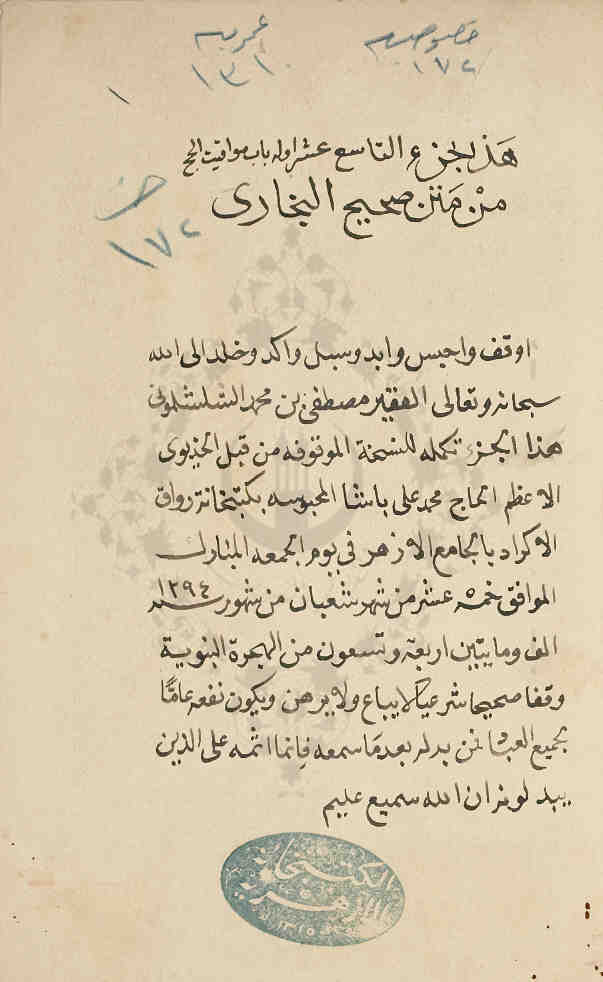 خصوصية عمومية
١٧٢ ١٣١٠
١
هذا الجزء التاسع عشر اوله باب مواقيت الحج
من متن صحيح البخارى
حديث
١٧٢
اوقف واحبس وابد وسبل واكد وخلد الى الله
سبحانه وتعالى الفقير مصطفى بن محمد الشلشلمونى
هذا الجزء تكمله للنسخة الموقوفه من قبل الخديوى
الاعظم الحاج محمد على باشا المحبوسه بكتبخانة رواق
الاكراد بالجامع الازهر فى يوم الجمعه المبارك
الموافق خمسة عشر من شهر شعبان من شهور سنه ١٢٩٤
الف ومايتين اربعة وتسعون من الهجرة النبوية
وقفا صحيحا شرعيا لا يباع ولا يرهن ويكون نفعه عامًّا
لجميع العباد فمن بدله بعد ما سمعه فانما اثمه على الذين
يبدلونه ان الله سميع عليم
الكتبخانة
الازهرية